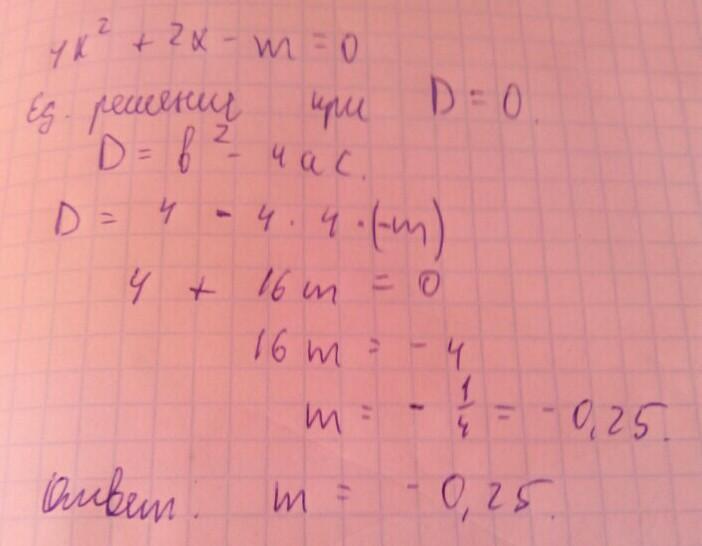 4x² + 2x - m = 0
Ед. решения при D = 0.
D = b² - 4ac.
D = 4 - 4 · 4 · (-m)
4 + 16m = 0
16m = -4
m = - 1/4 = - 0,25.
Ответ: m = - 0,25.